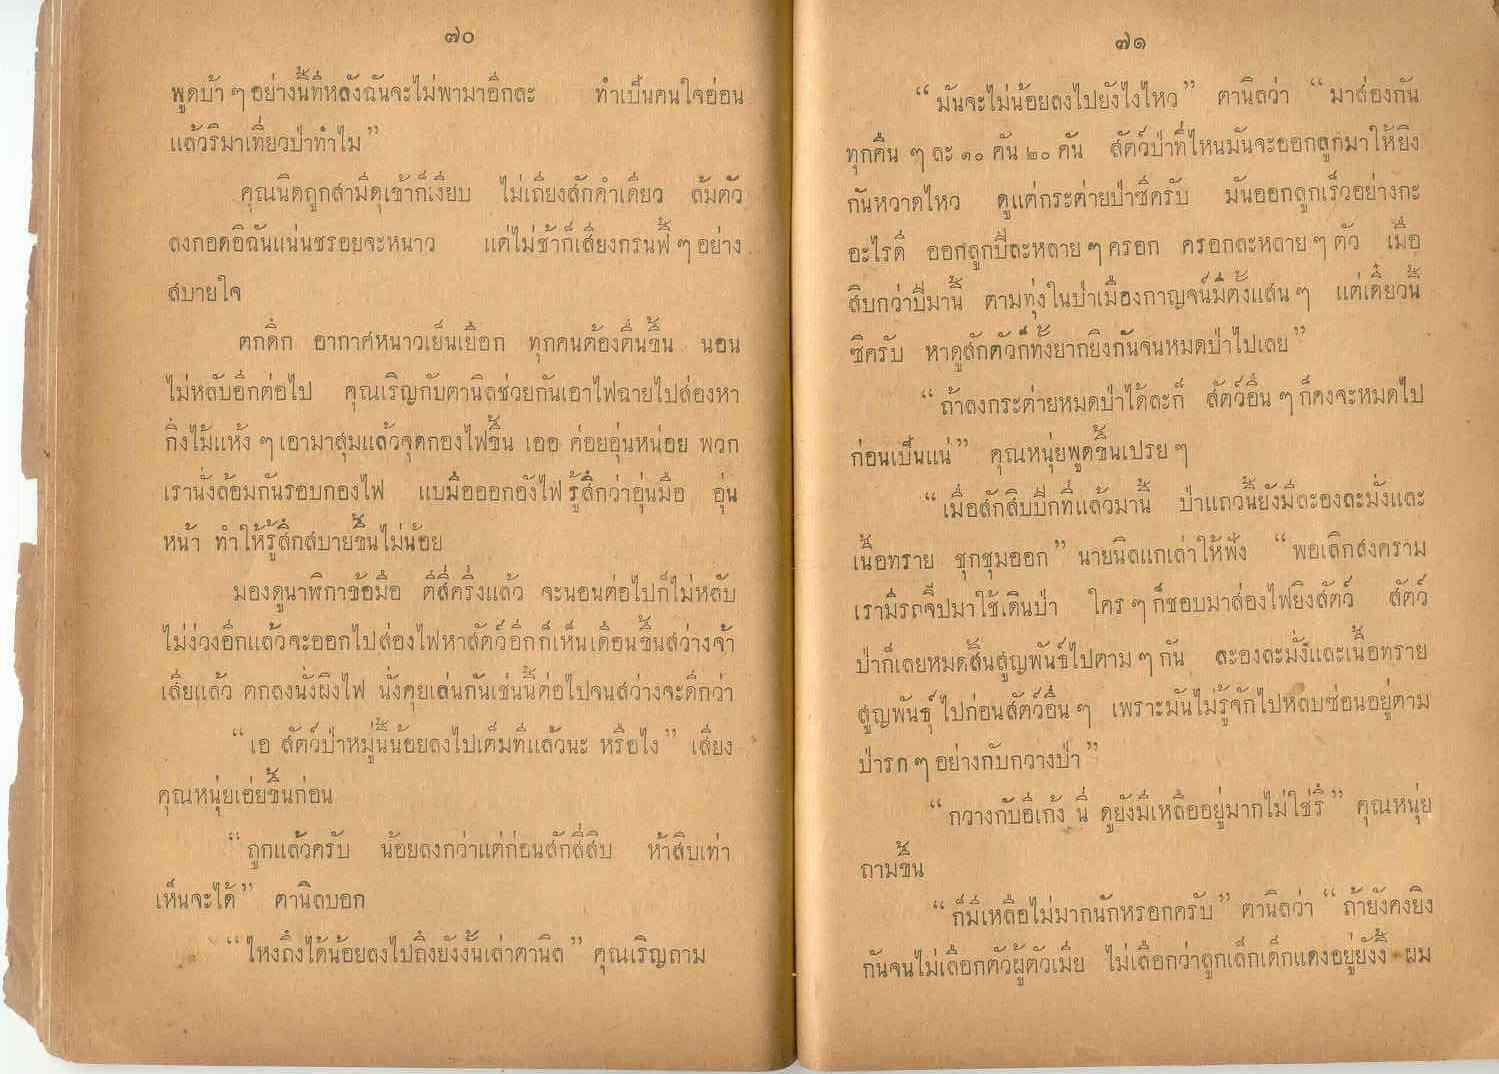 ๗๐
พูดบ้า ๆ อย่างนี้ทีหลังฉันจะไม่พามาอีกละ ทำเป็นคนใจอ่อน
แล้วริมาเที่ยวป่าทำไม”
คุณนิดถูกสามีดุเข้าก็เงียบ ไม่เถียงสักคำเดียว ล้มตัว
ลงกอดอิฉันแน่นชรอยจะหนาว แต่ไม่ช้าก็เสียงกรนฟี้ ๆ อย่าง
สบายใจ
ตกดึก อากาศหนาวเย็นเยือก ทุกคนต้องตื่นขึ้น นอน
ไม่หลับอีกต่อไป คุณเริญกับตานิลช่วยกันเอาไฟฉายไปส่องหา
กิ่งไม้แห้ง ๆ เอามาสุมแล้วจุดกองไฟขึ้น เออ ค่อยอุ่นหน่อย พวก
เรานั่งล้อมกันรอบกองไฟ แบมือออกอังไฟ รู้สึกว่าอุ่นมือ อุ่น
หน้า ทำให้รู้สึกสบายขึ้นไม่น้อย
มองดูนาฬิกาข้อมือ ตีสี่ครึ่งแล้ว จะนอนต่อไปก็ไม่หลับ
ไม่ง่วงอีกแล้วจะออกไปส่องไฟหาสัตว์อีกก็เห็นเดือนขึ้นสว่างจ้า
เสียแล้ว ตกลงนั่งผิงไฟ นั่งคุยเล่นกันเช่นนี้ต่อไปจนสว่างจะดีกว่า
“เอ สัตว์ป่าหมู่นี้น้อยลงไปเต็มทีแล้วนะ หรือไง” เสียง
คุณหนุ่ยเอ่ยขึ้นก่อน
“ถูกแล้วครับ น้อยลงกว่าแต่ก่อนสักสี่สิบ ห้าสิบเท่า
เห็นจะได้” ตานิลบอก
“ไหงถึงได้น้อยลงไปถึงยังงั้นเล่าตานิล” คุณเริญถาม
๗๑
“มันจะไม่น้อยลงไปยังไงไหว” ตานิลว่า “มาส่องกัน
ทุกคืน ๆ ละ ๑๐ คัน ๒๐ คัน สัตว์ป่าที่ไหนมันจะออกลูกมาให้ยิง
กันหวาดไหว ดูแต่กระต่ายป่าซีครับ มันออกลูกเร็วอย่างกะ
อะไรดี ออกลูกปีละหลาย ๆ ครอก ครอกละหลาย ๆ ตัว เมื่อ
สิบกว่าปีมานี้ ตามทุ่งในป่าเมืองกาญจน์มีตั้งแสน ๆ แต่เดี๋ยวนี้
ซิครับ หาดูสักตัวก็ทั้งยากยิงกันจนหมดป่าไปเลย”
“ถ้าลงกระต่ายหมดป่าได้ละก็ สัตว์อื่น ๆ ก็คงจะหมดไป
ก่อนเป็นแน่” คุณหนุ่ยพูดขึ้นเปรย ๆ
“เมื่อสักสิบปีกที่แล้วมานี้ ป่าแถวนี้ยังมีละองละมั่งและ
เนื้อทราย ชุกชุมออก” นายนิลแกเล่าให้ฟัง “พอเลิกสงคราม
เรามีรถจี๊ปมาใช้เดินป่า ใคร ๆ ก็ชอบมาส่องไฟยิงสัตว์ สัตว์
ป่าก็เลยหมดสิ้นสูญพันธ์ไปตาม ๆ กัน ละองละมั่งและเนื้อทราย
สูญพันธุ์ ไปก่อนสัตว์อื่น ๆ เพราะมันไม่รู้จักไปหลบซ่อนอยู่ตาม
ป่ารก ๆ อย่างกับกวางป่า”
“กวางกับอีเก้ง นี่ ดูยังมีเหลืออยู่มากไม่ใช่รึ” คุณหนุ่ย
ถามขึ้น
“ก็มีเหลือไม่มากนักหรอกครับ” ตานิลว่า “ถ้ายังคงยิง
กันจนไม่เลือกตัวผู้ตัวเมีย ไม่เลือกว่าลูกเล็กเด็กแดงอยู่ยังงี้ ผม